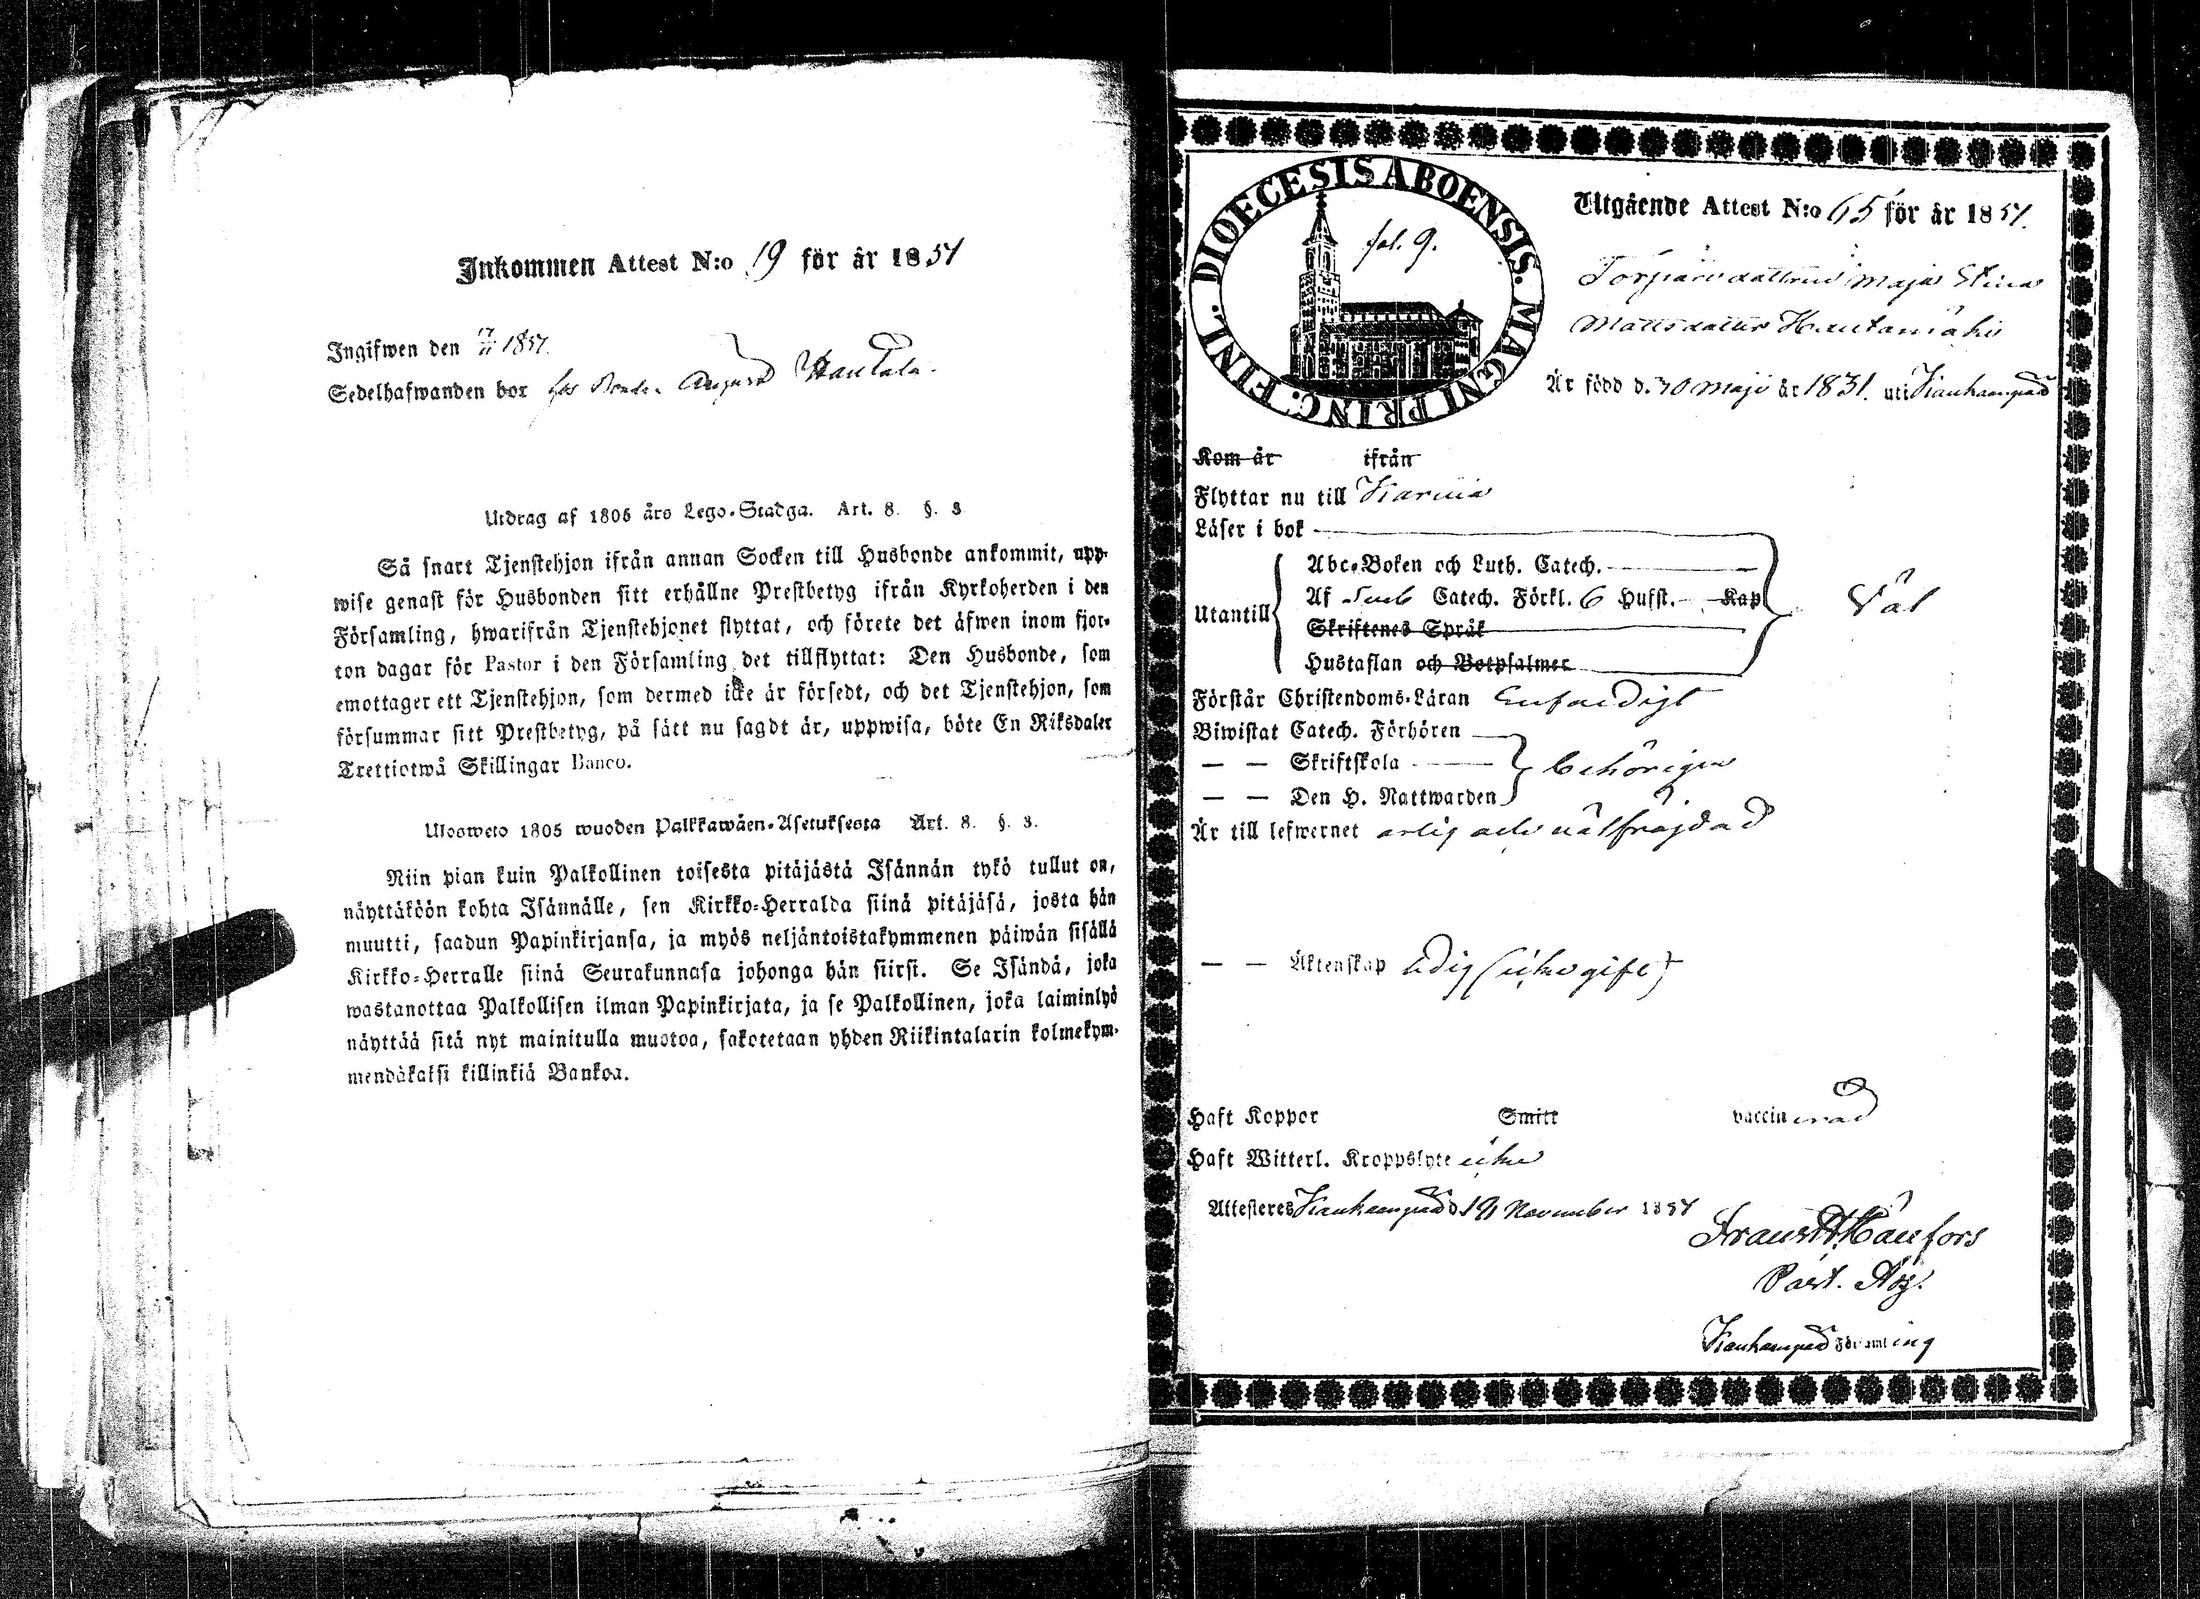 Inkommen Attest N:o 19 för år 1851
Ingifwen den 17/11 1851.
Sedelhafwanden bor hos Bonden August Hantala.
Utdrag af 1805 års Lego-Stadga. Art. 8. §. 3
Så snart Tjenstehjon ifrån annan Socken till Husbonde ankommit, upp-
wise genast för Husbonden sitt erhållne Prestbetyg ifrån Kyrkoherden i den
Församling, hwarifrån Tjenstehjonet flyttat, och förete det äfwen inom fjor-
ton dagar för Pastor i den Församling det tillflyttat: Den Husbonde, som
emottager ett Tjenstehjon, som dermed icke är försedt, och det Tjenstehjon, som
försummar sitt Prestbetyg, på sätt nu sagdt är, uppwisa, böte En Riksdaler
Trettiotwå Skillingar Banco.
Ulosweto 1805 wuoden Palkkawäen-Asetuksesta Art. 8. §. 3.
Niin pian kuin Palkollinen toisesta pitäjästä Isännän tykö tullut on,
näyttäköön kohta Isännälle, sen Kirkko-Herralda siinä pitäjäsä, josta hän
muutti, saadun Papinkirjansa, ja myös neljäntoistakymmenen päiwän sisällä
Kirkko-Herralle siinä Seurakunnasa johonga hän siirsi. Se Isändä, joka
wastanottaa Palkollisen ilman Papinkirjata, ja se Palkollinen, joka laiminlyö
näyttää sitä nyt mainitulla muotoa, sakotetaan yhden Riikintalarin kolmekym-
mendäkaksi killinkiä Bankoa.
DIOECESIS ABOENSIS. MAGNI PRINC. FINL.
fol. 9.
Utgående Attest N:o 65 för år 1851.
Torparedottren Maja Stina
Mattsdotter Hautamäki
Är född d. 30 Maji år 1831. uti Kauhampää
Kom år ifrån
Flyttar nu till Karvia
Läser i bok
Abc-Boken och Luth. Catech.
Utantill Af Sveb Catech. Förkl. 6 Hufst. Kap
Skriftenes Språk
Hustaflan och Botpsalmer
Väl
Förstår Christendoms-Läran Enfaldigt
Biwistat Catech. Förhören
— — Skriftskola behörigen
— — Den H. Nattwarden
Är till lefwernet ärlig och välfräjdad
— — Äktenskap ledig (icke gift)
Haft Koppor Smitt vaccinerad
Haft Witterl. Kroppslyte icke
Attesteres Kauhampää d November 1851
Frans H Hänfors
Past. Adj.
Kauhampää Församling